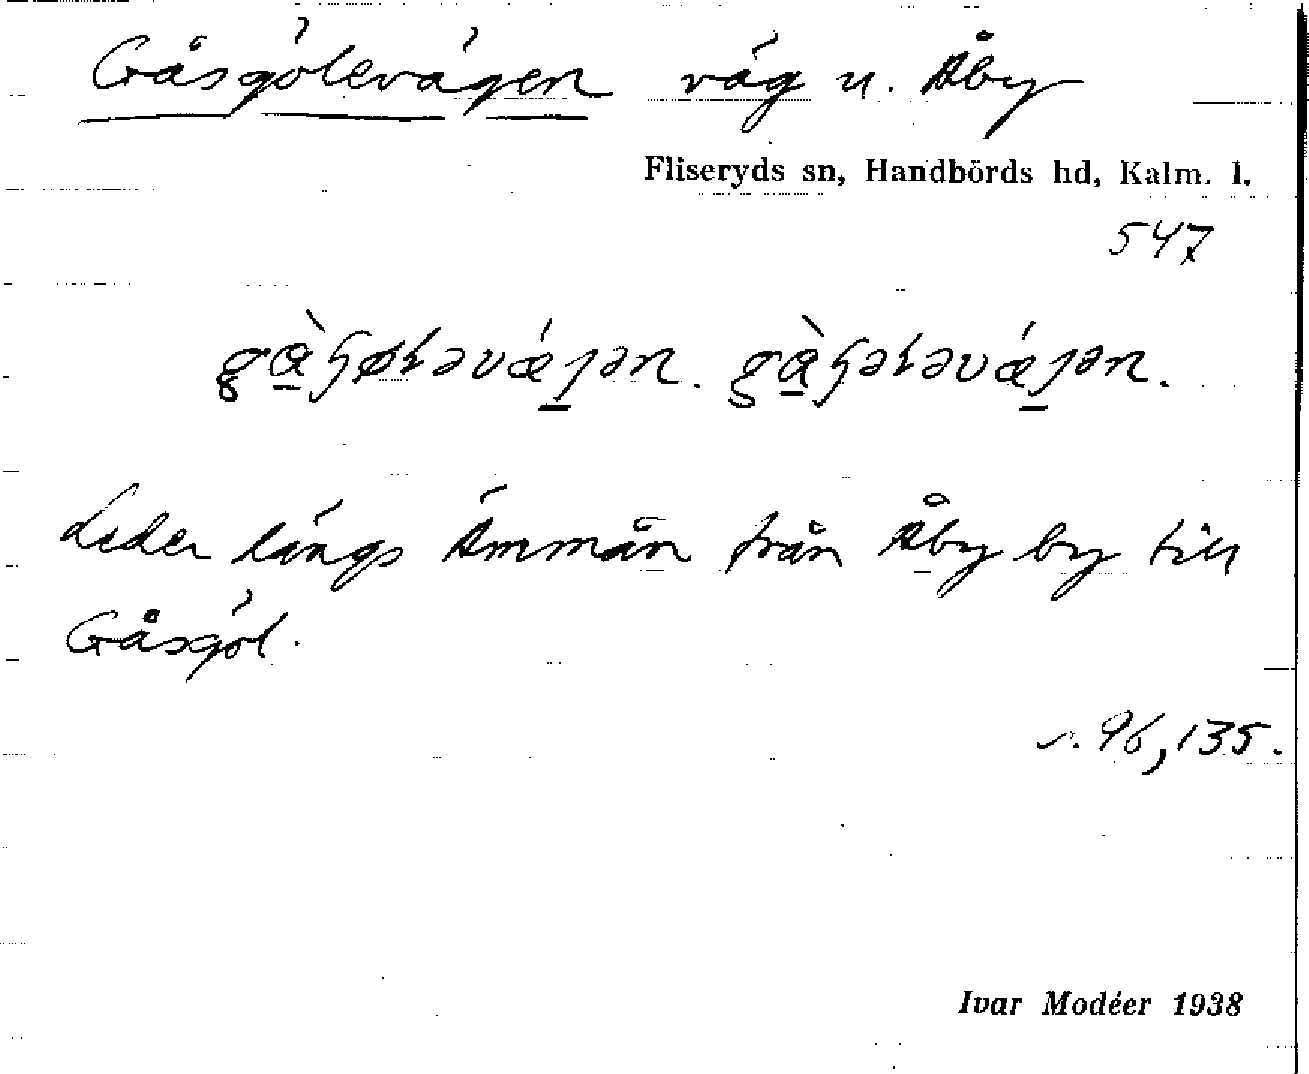 Gåsgölevägen väg u. Åby
Fliseryds sn, Handbörds hd, Kalm. l.
547
Leder längs Ämmån från Åby by till
Gåsgöl.
s. 96, 135.
Ivar Modéer 1938